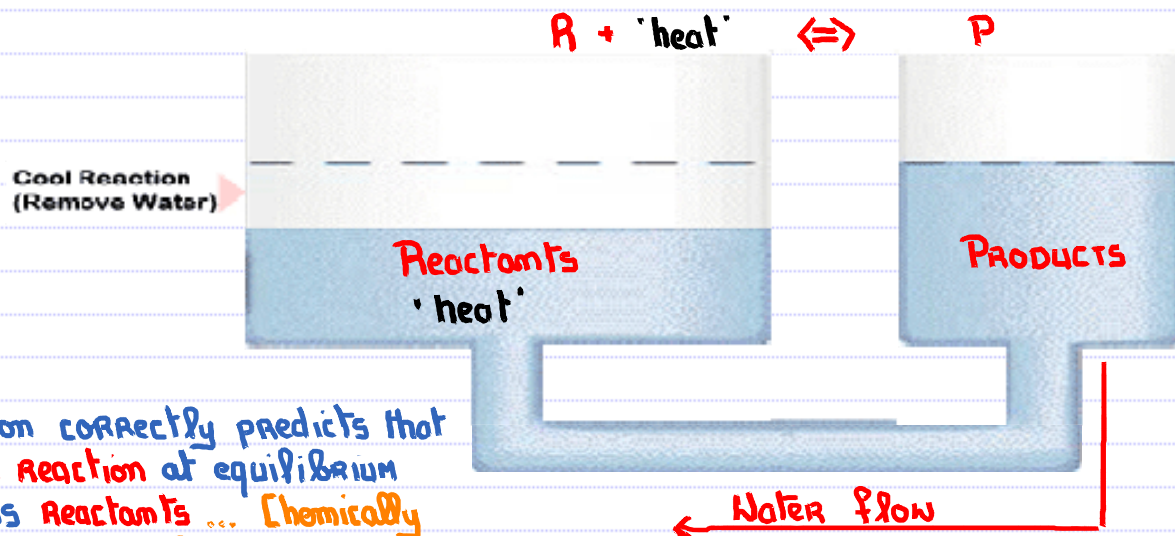 R + "heat" <=> P
Cool Reaction
(Remove Water)
Reactants
"heat"
PRODUCTS
on correctly predicts that
Reaction at equilibrium
s Reactants ... Chemically
Water flow